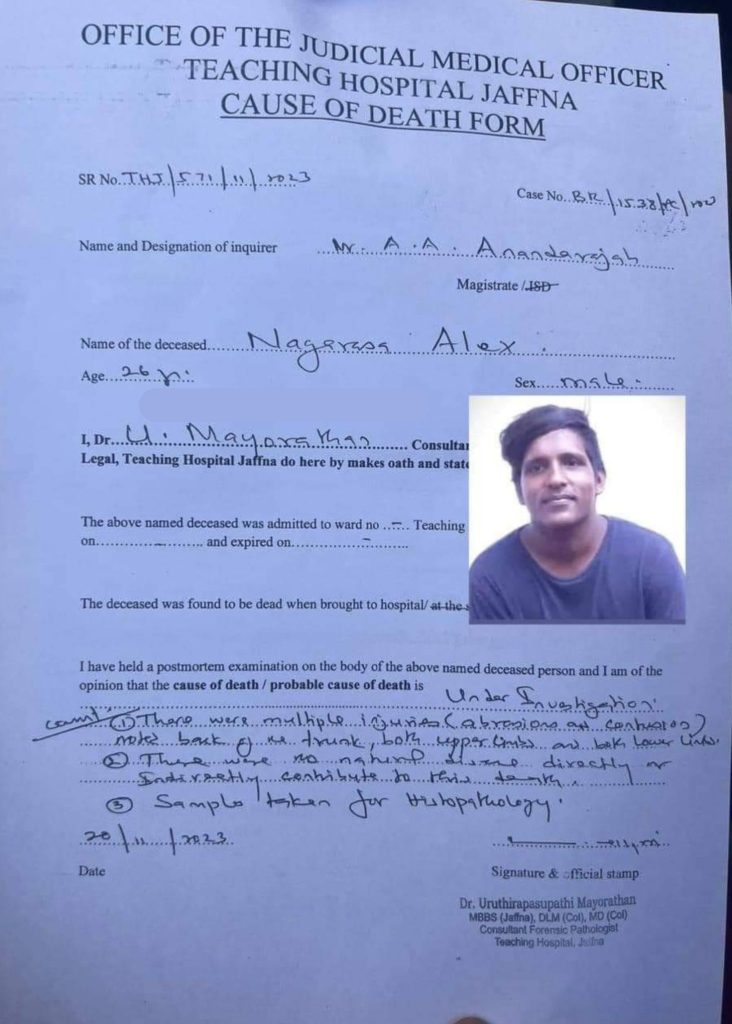 OFFICE OF THE JUDICIAL MEDICAL OFFICER
TEACHING HOSPITAL JAFFNA
CAUSE OF DEATH FORM
SR No..THJ/571/11/2023
Case No..B.R./1538/PC/
Name and Designation of inquirer ....Mr. A.A. Anandarajah
Magistrate /JSD
Name of the deceased.....Nagarasa Alex.
Age...26 yr.
Sex.....male.
I, Dr...U. Mayorathan......... Consulta
Legal, Teaching Hospital Jaffna do here by makes oath and stat
The above named deceased was admitted to ward no ..–... Teaching
on.............–......... and expired on..............–..........
The deceased was found to be dead when brought to hospital/ at the
I have held a postmortem examination on the body of the above named deceased person and I am of the
opinion that the cause of death / probable cause of death is Under Investigation.
① There were multiple injuries (abrasions and contusions)
noted back of the trunk, both upper limbs and both lower limbs.
② There were no natural disease directly or
Indirectly contribute to this death.
③ Sample taken for Histopathology.
20/11/2023
Date
Signature & official stamp
Dr. Uruthirapasupathi Mayorathan
MBBS (Jaffna), DLM (Col), MD (Col)
Consultant Forensic Pathologist
Teaching Hospital, Jaffna